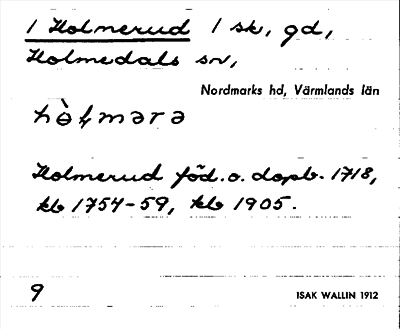 1 Holmerud 1 sk, gd,
Holmedals sn,
Nordmarks hd, Värmlands län
Holmerud föd. o. dopb. 1718,
kb 1754-59, kb 1905.
9
ISAK WALLIN 1912